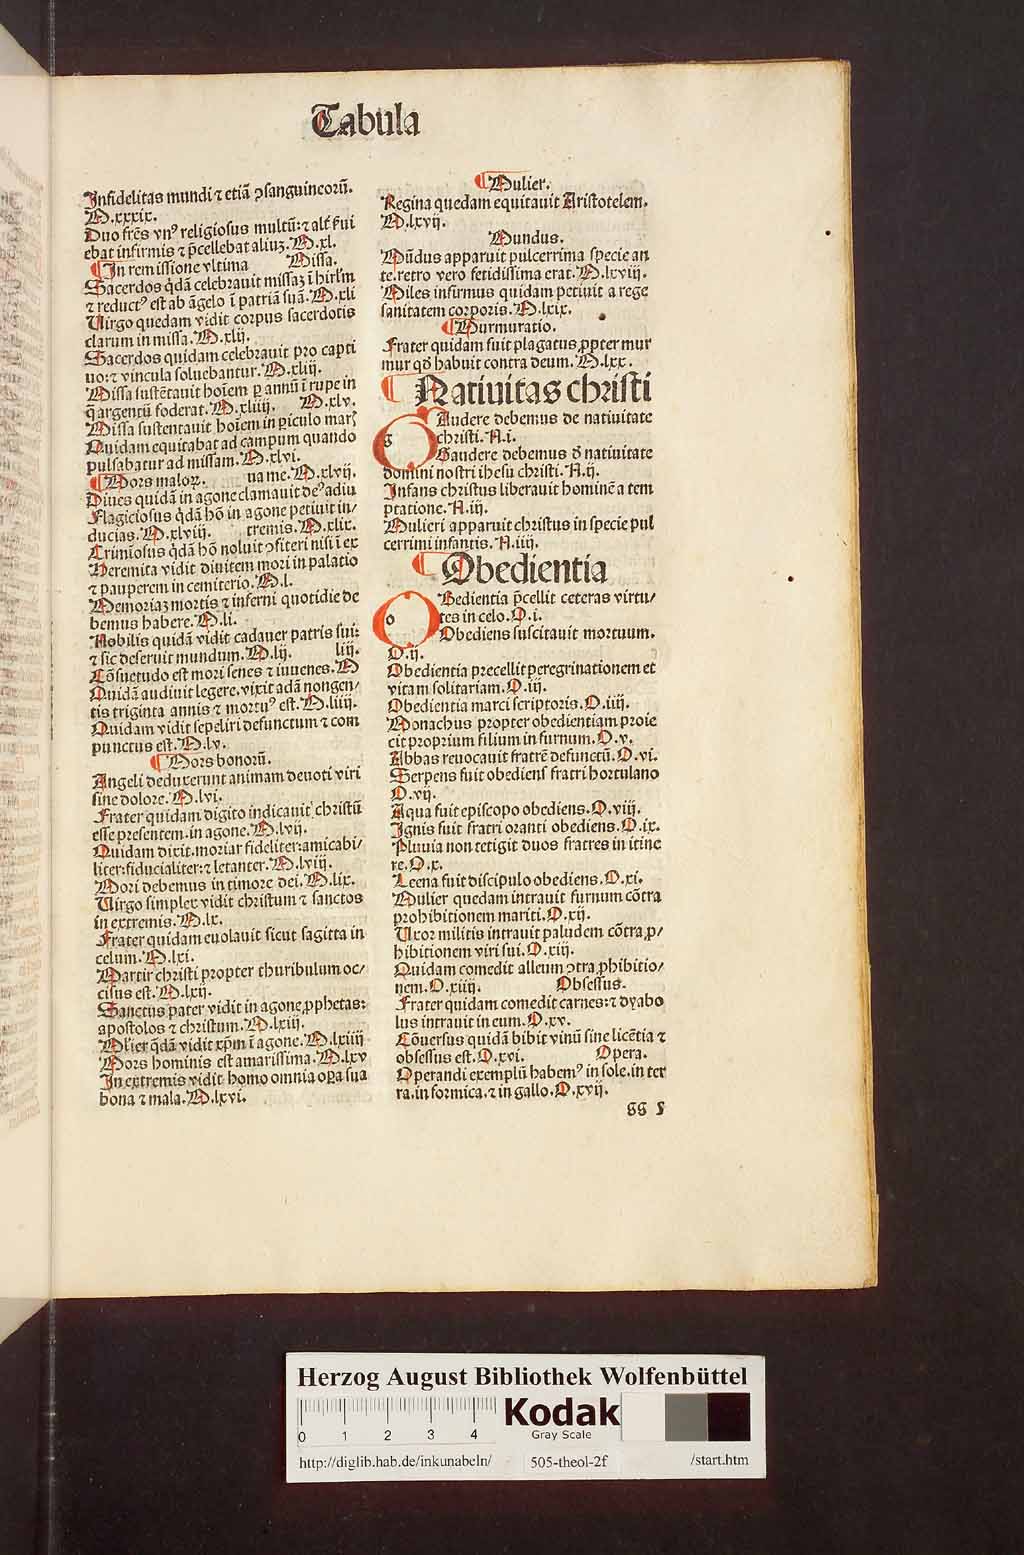 Tabula
Infidelitas mundi ⁊ etiā ꝯsanguineorū.
M.xxxix.
Duo frēs vnꝰ religiosus multū:⁊ alt̄ ẜui
ebat infirmis ⁊ p̄cellebat aliuꝫ. M.xl.
¶ In remissione vltima Missa.
Sacerdos qdā celebrauit missaꝫ ī hirlm̄
⁊ reductꝰ est ab āgelo ī patriā suā. M.xli
Virgo quedam vidit corpus sacerdotis
clarum in missa. M.xlij.
Sacerdos quidam celebrauit pro capti
uo:⁊ vincula soluebantur. M.xliij.
Missa sustētauit hoīem ꝑ annū ī rupe in
q̄ argentū foderat. M.xliiij. M.xlv.
Missa sustentauit hoīem in ꝑiculo marꝭ
Quidam equitabat ad campum quando
pulsabatur ad missam. M.xlvi.
¶ Mors maloꝝ. ua me. M.xlvij.
Diues quidā in agone clamauit deꝰ adiu
Flagiciosus qdā hō in agone petiuit in/
ducias. M.xlviij. tremis. M.xlix.
Criminosus qdā hō noluit ꝯfiteri nisi ī ex
Heremita vidit diuitem mori in palatio
⁊ pauperem in cemiterio. M.l.
Memoriaꝫ mortis ⁊ inferni quotidie de
bemus habere. M.li.
Nobilis quidā vidit cadauer patris sui:
⁊ sic deseruit mundum. M.lij. liij.
Cōsuetudo est mori senes ⁊ iuuenes. M
Quidā audiuit legere. vixit adā nongen/
tis triginta annis ⁊ mortuꝰ est. M.liiij.
Quidam vidit sepeliri defunctum ⁊ com
punctus est. M.lv.
¶ Mors bonorū.
Angeli deduxerunt animam deuoti viri
sine dolore. M.lvi.
Frater quidam digito indicauit christū
esse presentem. in agone. M.lvij.
Quidam dixit. moriar fideliter:amicabi/
liter:fiducialiter:⁊ letanter. M.lviij.
Mori debemus in timore dei. M.lix.
Virgo simplex vidit christum ⁊ sanctos
in extremis. M.lx.
Frater quidam euolauit sicut sagitta in
celum. M.lxi.
Martir christi propter thuribulum oc/
cisus est. M.lxij.
Sanctus pater vidit in agone ꝓphetas:
apostolos ⁊ christum. M.lxiij.
Ml̄ier qdā vidit xp̄m ī agone. M.lxiiij
Mors hominis est amarissima. M.lxv
In extremis vidit homo omnia oꝑa sua
bona ⁊ mala. M.lxvi.
¶ Mulier.
Regina quedam equitauit Aristotelem.
M.lxvij.
Mundus.
Mūdus apparuit pulcerrima specie an
te. retro vero fetidissima erat. M.lxviij.
Miles infirmus quidam petiuit a rege
sanitatem corporis. M.lxix.
¶ Murmuratio.
Frater quidam fuit plagatus ꝓpter mur
mur qd̄ habuit contra deum. M.lxx.
¶ Natiuitas christi
g Audere debemus de natiuitate
christi. N.i.
Gaudere debemus d̄ natiuitate
domini nostri ihesu christi. N.ij.
Infans christus liberauit hominē a tem
ptatione. N.iij.
Mulieri apparuit christus in specie pul
cerrimi infantis. N.iiij.
¶ Obedientia
o Bedientia p̄cellit ceteras virtu/
tes in celo. O.i.
Obediens suscitauit mortuum.
O.ij.
Obedientia precellit peregrinationem et
vitam solitariam. O.iij.
Obedientia marci scriptoris. O.iiij.
Monachus propter obedientiam proie
cit proprium filium in furnum. O.v.
Abbas reuocauit fratrē defunctū. O.vi.
Serpens fuit obediens fratri hortulano
O.vij.
Aqua fuit episcopo obediens. O.viij.
Ignis fuit fratri oranti obediens. O.ix.
Pluuia non tetigit duos fratres in itine
re. O.x.
Leena fuit discipulo obediens. O.xi.
Mulier quedam intrauit furnum cōtra
prohibitionem mariti. O.xij.
Uxor militis intrauit paludem cōtra ꝓ/
hibitionem viri sui. O.xiij.
Quidam comedit alleum ꝯtra ꝓhibitio/
nem. O.xiiij. Obsessus.
Frater quidam comedit carnes:⁊ dyabo
lus intrauit in eum. O.xv.
Cōuersus quidā bibit vinū sine licētia ⁊
obsessus est. O.xvi. Opera.
Operandi exemplū habemꝰ in sole. in ter
ra. in formica. ⁊ in gallo. O.xvij.
Herzog August Bibliothek Wolfenbüttel
0 1 2 3 4
Kodak
Gray Scale
http://diglib.hab.de/inkunabeln/ 505-theol-2f /start.htm